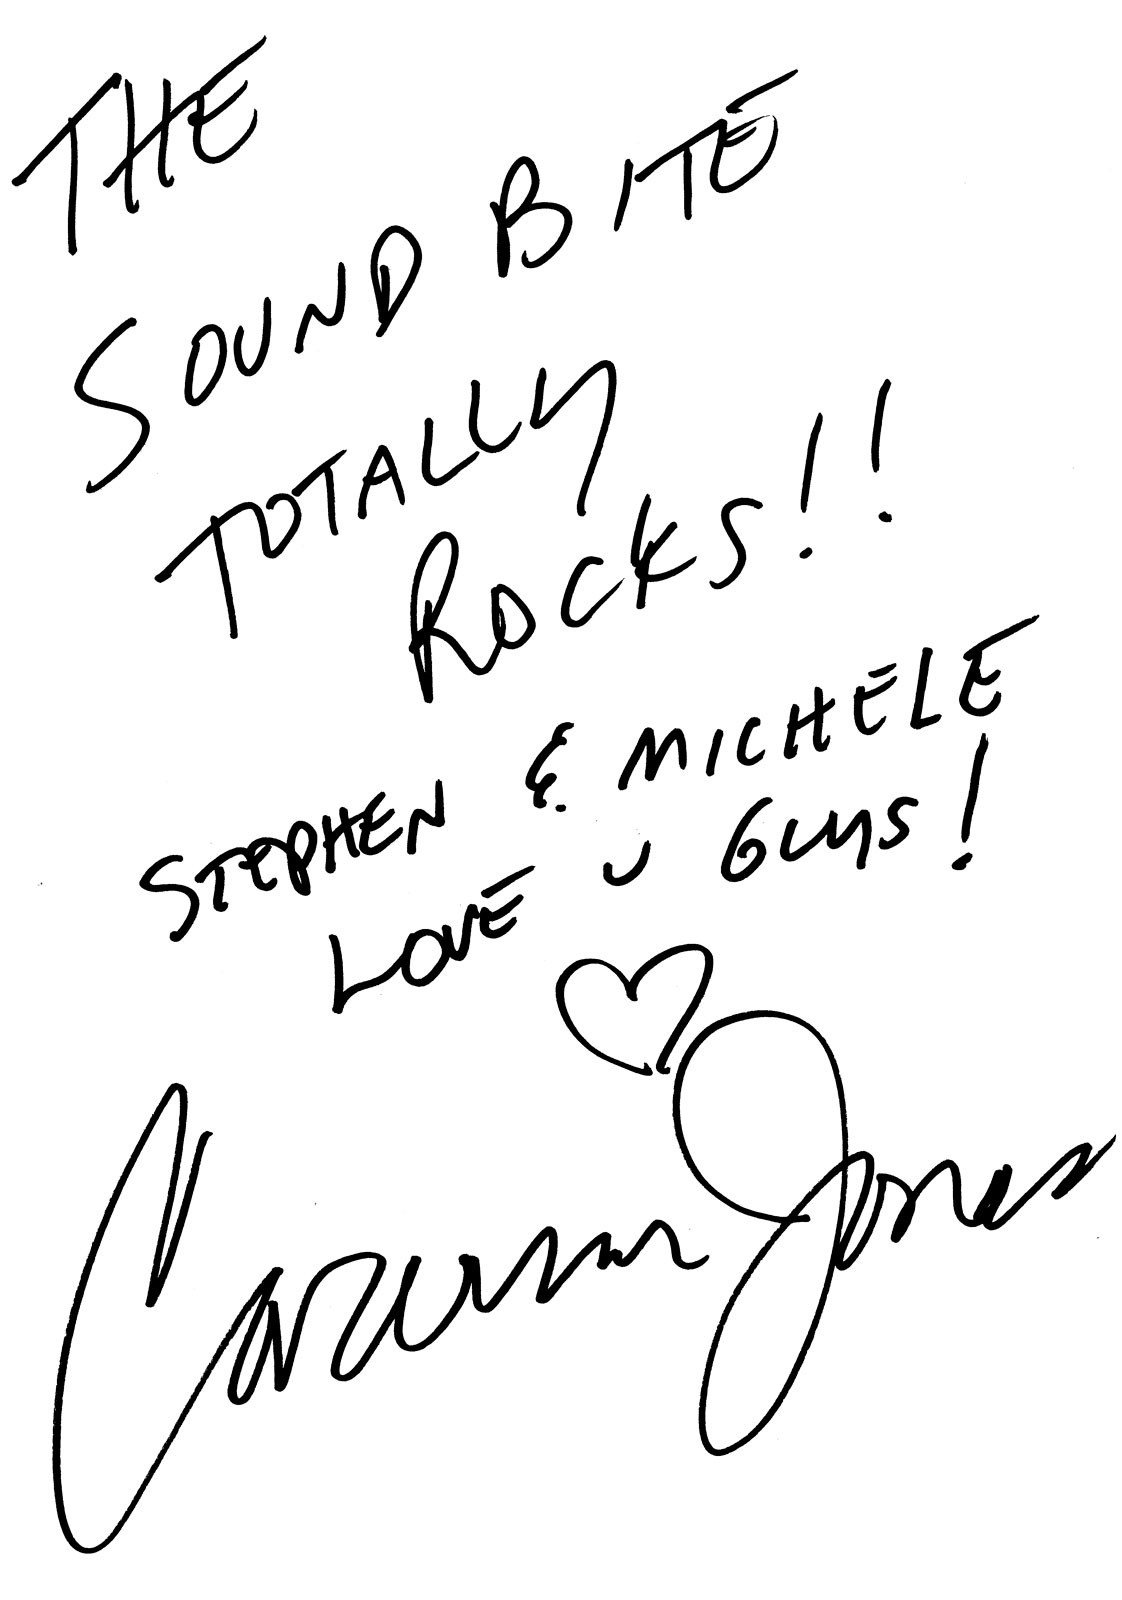 THE
SOUND BITE
TOTALLY
ROCKS!!
STEPHEN & MICHELE
LOVE U GUYS!
Jones